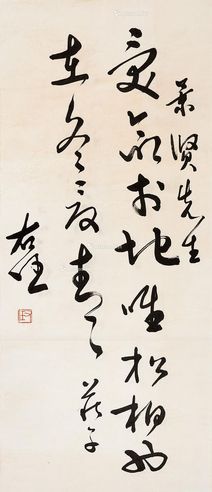 賢先生
受命於地唯松柏
在冬夏青々 莊子
右任